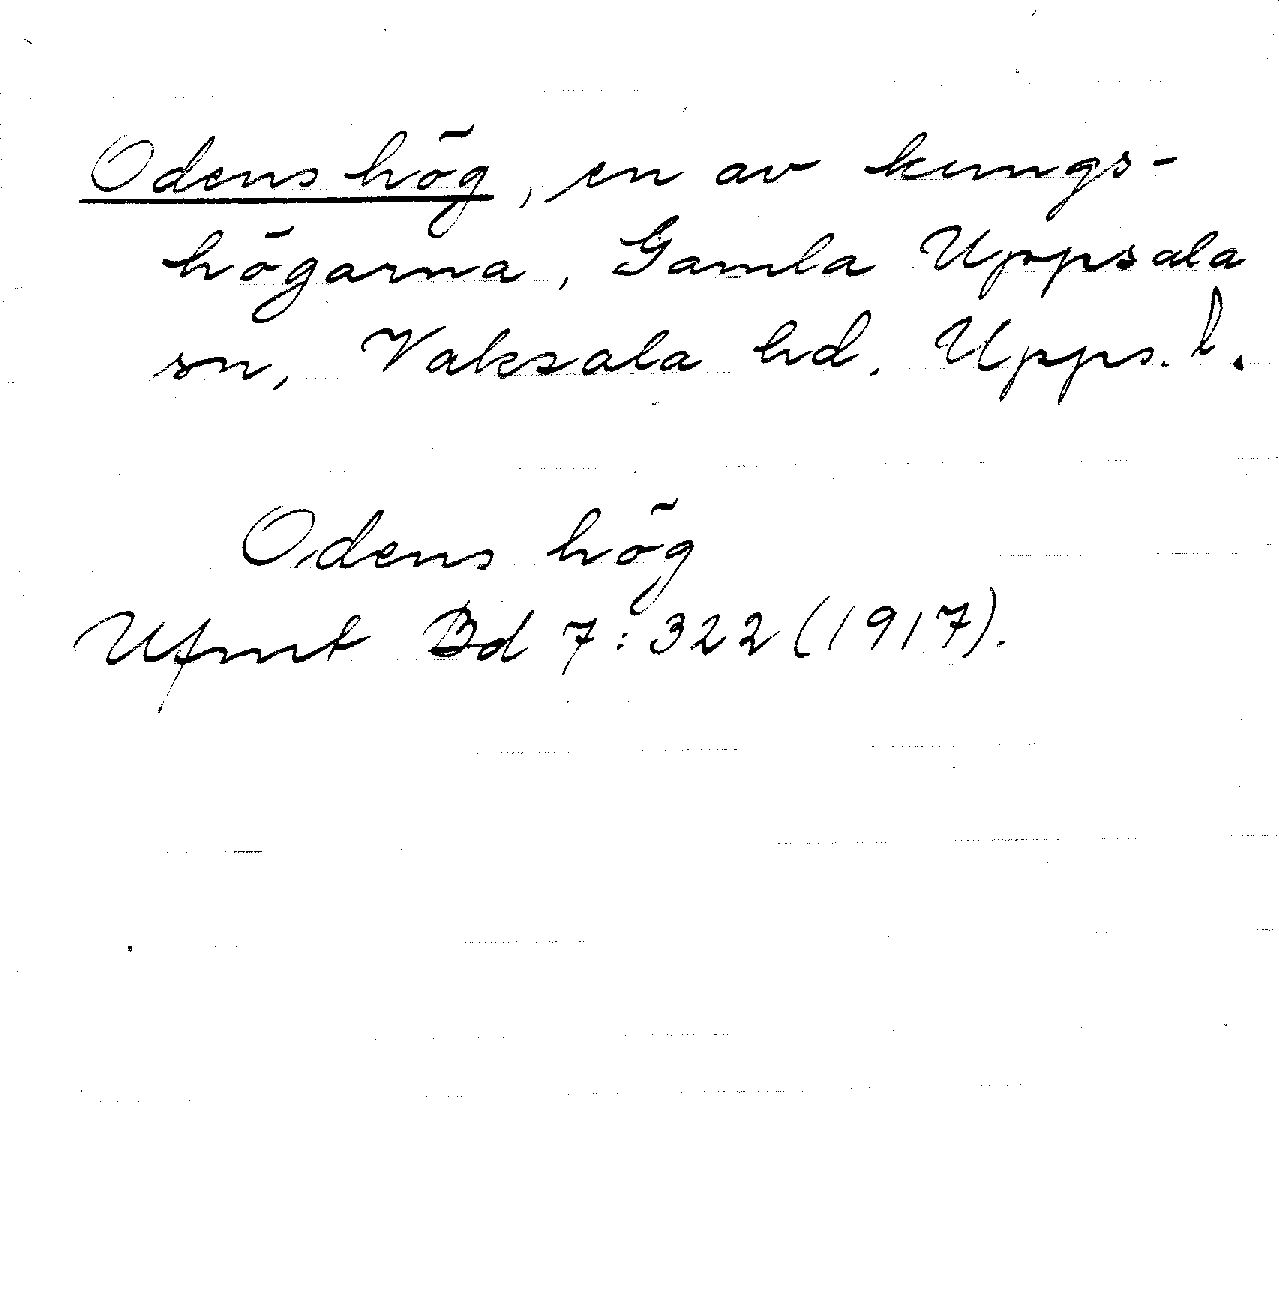 Odens hög, en av kungs-
högarna, Gamla Uppsala
sn, Vaksala hd, Upps. l.
Odens hög
Ufmt Bd 7:322 (1917).